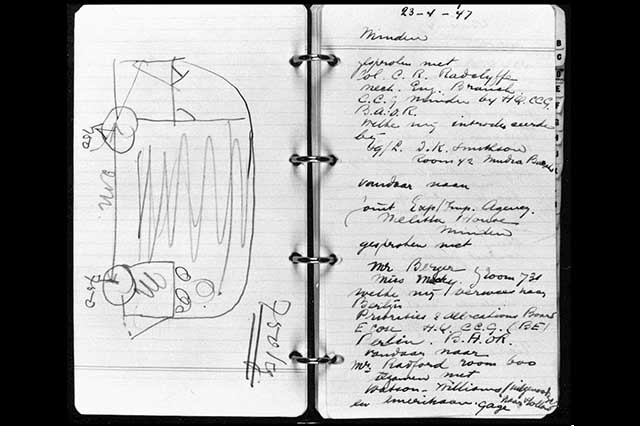 750
750
23-4-'47
Minden
gesproken met
Col. C. R. Radclyffe
Mech. Eng. Branch
C.C.G Minden by HQ. CCG.
B.A.O.R.
welke mij introduceerde
bij
Room 42 Mudra
vandaar naar
Joint Exp/Imp. Agency.
Melitta House
Minden
gesproken met
Mr Berger
Miss room 731
welke mij verwees naar
Berlin
Priorities & Allocations Board
Econ. H.Q. C.C.G. (BE)
Berlin. B.A.O.R.
vandaar naar
Mr. Radford room 600
tezamen met
Watson-Williams
en Amerikaan Gage
B
C
D
E